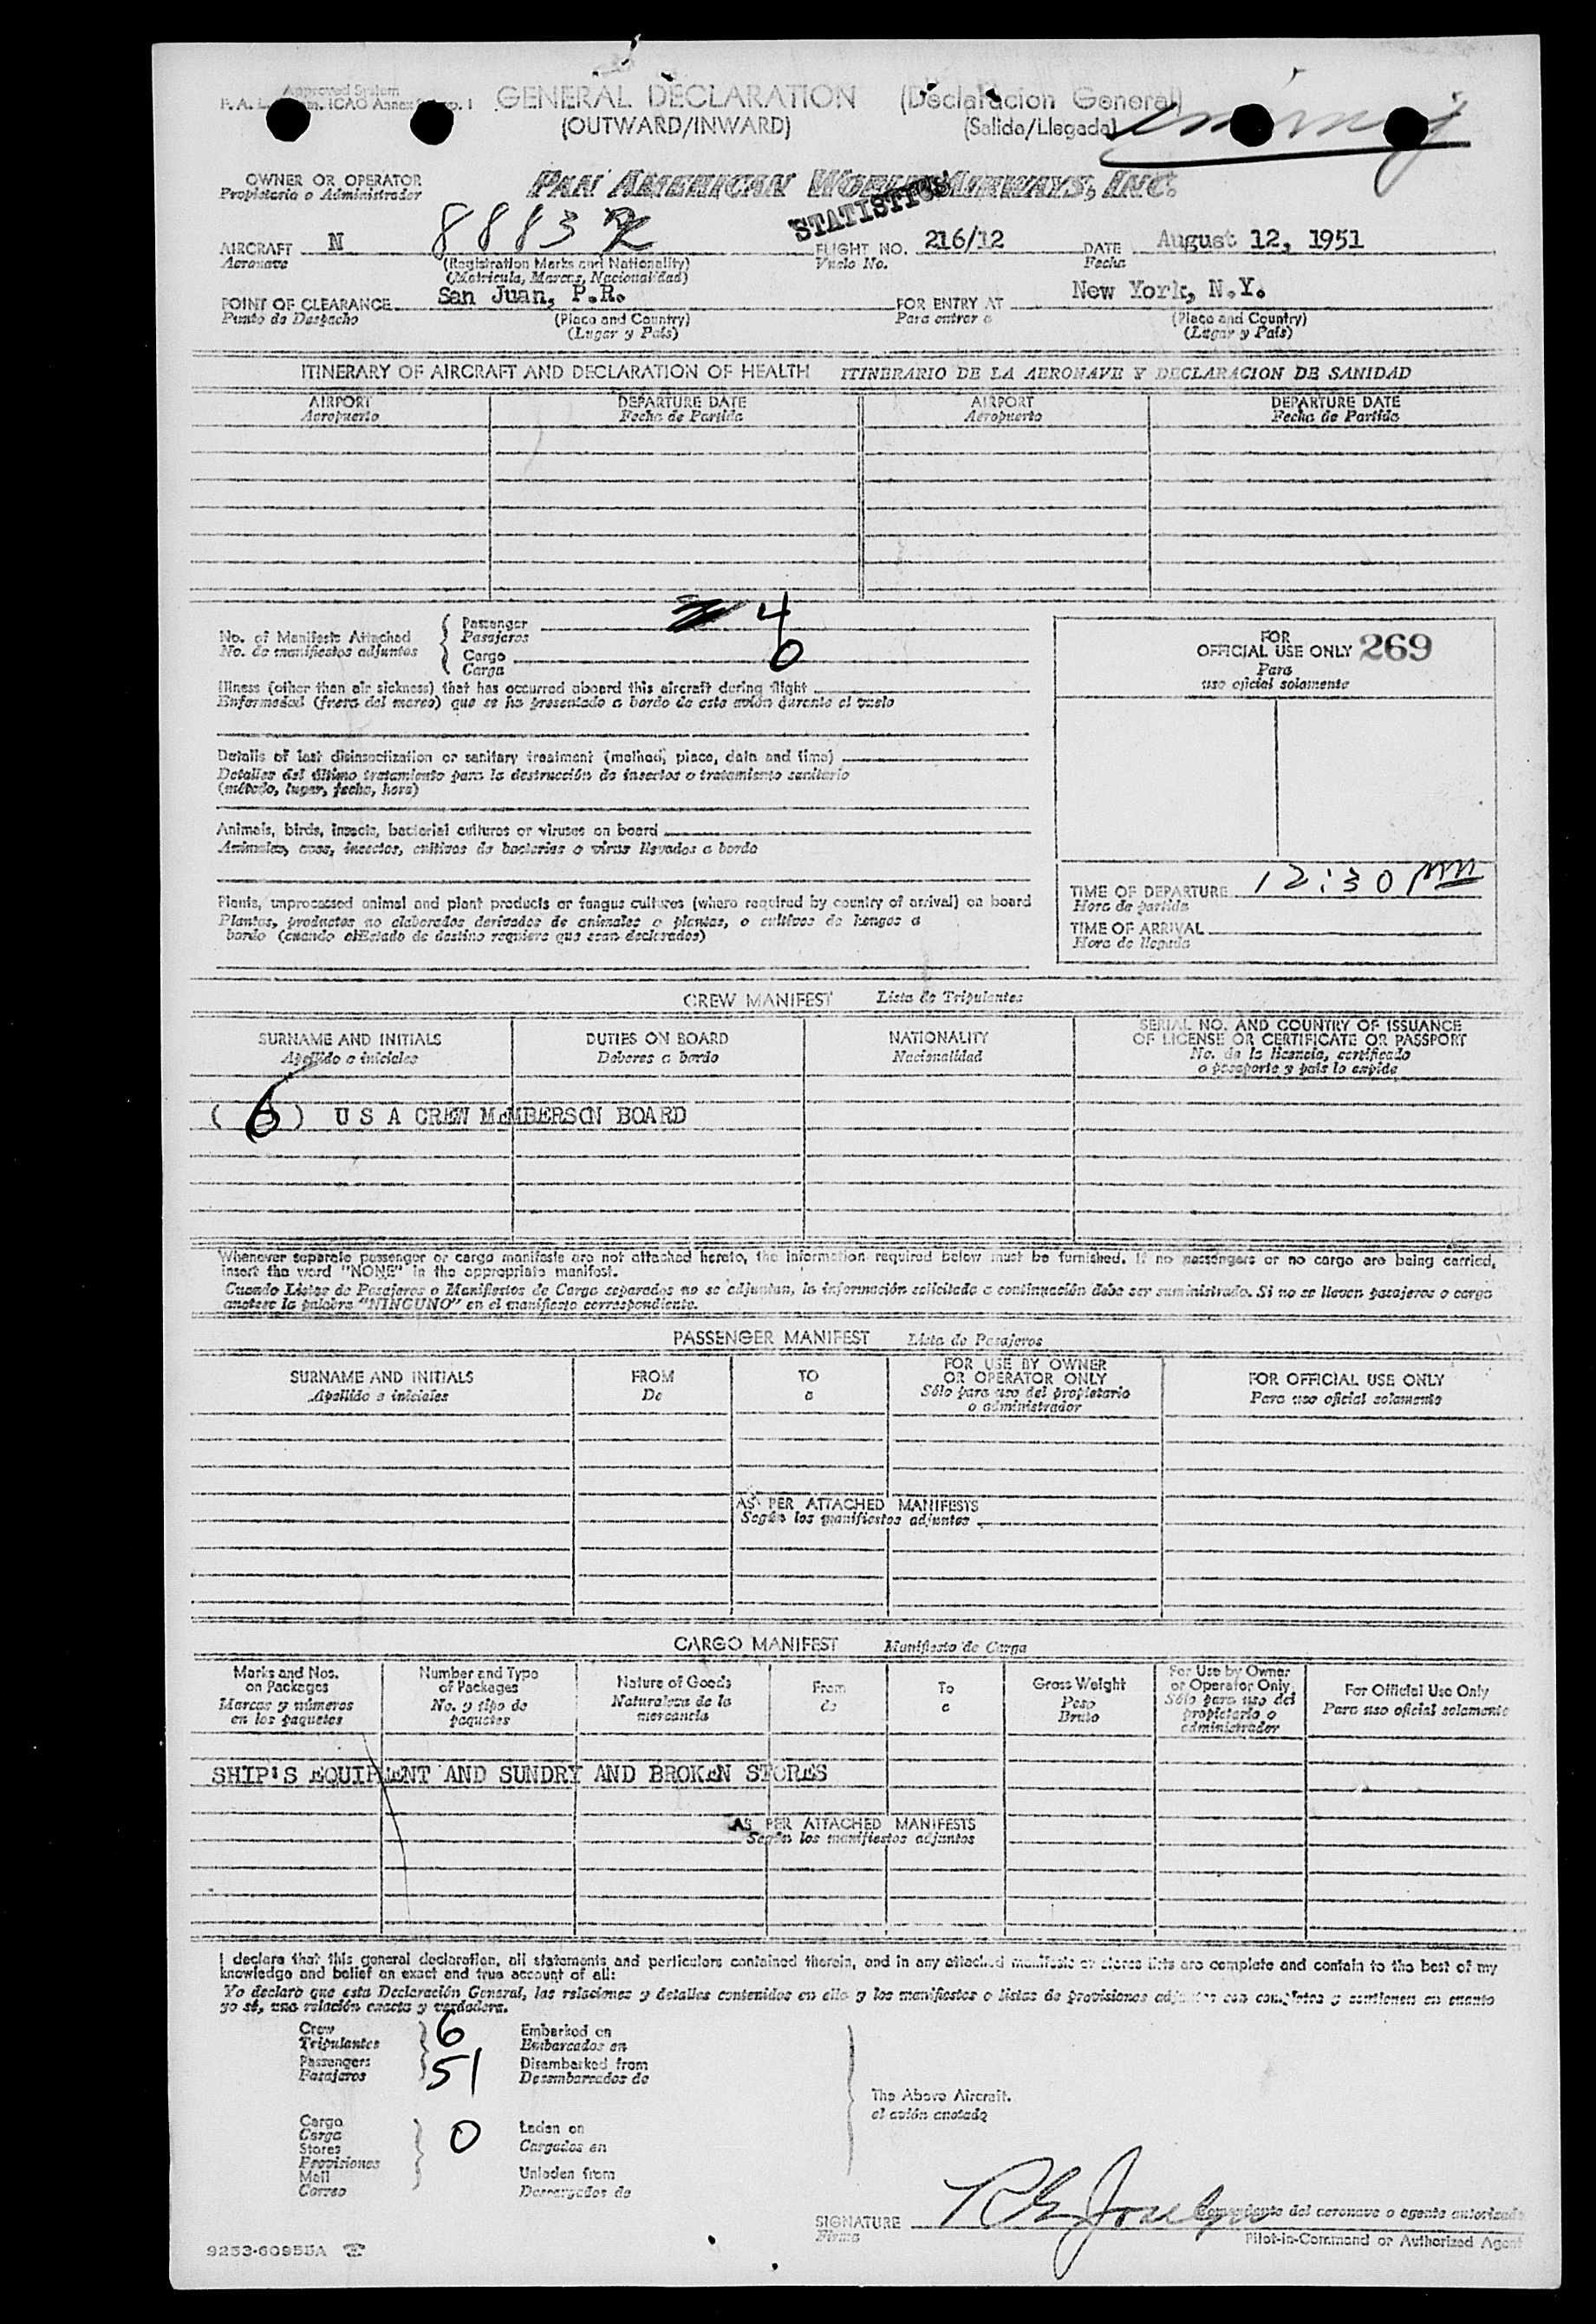 Approved System
GENERAL DECLARATION (Declaracion General)
(OUTWARD/INWARD) (Salida/Llegada)
OWNER OR OPERATOR PAN AMERICAN WORLD AIRWAYS, INC.
Propietario o Administrador
STATISTICS
AIRCRAFT N 8883 FLIGHT NO. 216/12 DATE August 12, 1951
Aeronave (Registration Marks and Nationality) Vuelo No. Fecha
(Matricula, Marcas, Nacionalidad)
POINT OF CLEARANCE San Juan, P.R. FOR ENTRY AT New York, N.Y.
Punto de Despacho (Place and Country) Para entrar a (Place and Country)
(Lugar y País) (Lugar y País)
ITINERARY OF AIRCRAFT AND DECLARATION OF HEALTH ITINERARIO DE LA AERONAVE Y DECLARACION DE SANIDAD
AIRPORT DEPARTURE DATE AIRPORT DEPARTURE DATE
Aeropuerto Fecha de Partida Aeropuerto Fecha de Partida
No. of Manifests Attached Passenger 4
No. de manifiestos adjuntos Pasajeros
Cargo 0
Carga
FOR
OFFICIAL USE ONLY 269
Para
uso oficial solamente
Illness (other than air sickness) that has occurred aboard this aircraft during flight
Enfermedad (fuera del mareo) que se ha presentado a bordo de este avión durante el vuelo
Details of last disinsectization or sanitary treatment (method, place, date and time)
Detalles del último tratamiento para la destrucción de insectos o tratamiento sanitario
(método, lugar, fecha, hora)
Animals, birds, insects, bacterial cultures or viruses on board
Animales, aves, insectos, cultivos de bacterias o virus llevados a bordo
Plants, unprocessed animal and plant products or fungus cultures (where required by country of arrival) on board
Plantas, productos no elaborados derivados de animales o plantas, o cultivos de hongos a
bordo (cuando el Estado de destino requiera que sean declarados)
TIME OF DEPARTURE 12:30 pm
Hora de partida
TIME OF ARRIVAL
Hora de llegada
CREW MANIFEST Lista de Tripulantes
SURNAME AND INITIALS DUTIES ON BOARD NATIONALITY SERIAL NO. AND COUNTRY OF ISSUANCE
OF LICENSE OR CERTIFICATE OR PASSPORT
Apellido e iniciales Deberes a bordo Nacionalidad No. de la licencia, certificado
o pasaporte y país lo expide
( 6 ) U S A CREW MEMBERS ON BOARD
Whenever separate passenger or cargo manifests are not attached hereto, the information required below must be furnished. If no passengers or no cargo are being carried,
insert the word "NONE" in the appropriate manifest.
Cuando Listas de Pasajeros o Manifiestos de Carga separados no se adjuntan, la información solicitada a continuación debe ser suministrada. Si no se llevan pasajeros o carga
anótese la palabra "NINGUNO" en el manifiesto correspondiente.
PASSENGER MANIFEST Lista de Pasajeros
SURNAME AND INITIALS FROM TO FOR USE BY OWNER
OR OPERATOR ONLY FOR OFFICIAL USE ONLY
Apellido e iniciales De a Sólo para uso del propietario
o administrador Para uso oficial solamente
AS PER ATTACHED MANIFESTS
Según los manifiestos adjuntos
CARGO MANIFEST Manifiesto de Carga
Marks and Nos.
on Packages
Marcas y números
en los paquetes
Number and Type
of Packages
No. y tipo de
paquetes
Nature of Goods
Naturaleza de la
mercancía
From
de
To
a
Gross Weight
Peso
Bruto
For Use by Owner
or Operator Only
Sólo para uso del
propietario o
administrador
For Official Use Only
Para uso oficial solamente
SHIP'S EQUIPMENT AND SUNDRY AND BROKEN STORES
AS PER ATTACHED MANIFESTS
Según los manifiestos adjuntos
I declare that this general declaration, all statements and particulars contained therein, and in any attached manifests or stores lists are complete and contain to the best of my
knowledge and belief an exact and true account of all:
Yo declaro que esta Declaración General, las relaciones y detalles contenidos en ella y los manifiestos o listas de provisiones adjuntos son completos y contienen en cuanto
yo sé, una relación exacta y verdadera.
Crew 6 Embarked on
Tripulantes Embarcados en
Passengers 51 Disembarked from
Pasajeros Desembarcados de
The Above Aircraft.
el avión anotado
Cargo
Carga
Stores
Provisiones
Mail
Correo
0
Laden on
Cargados en
Unladen from
Descargados de
SIGNATURE Comandante del aeronave o agente autorizado
Firma Pilot-in-Command or Authorized Agent
9253-60955A